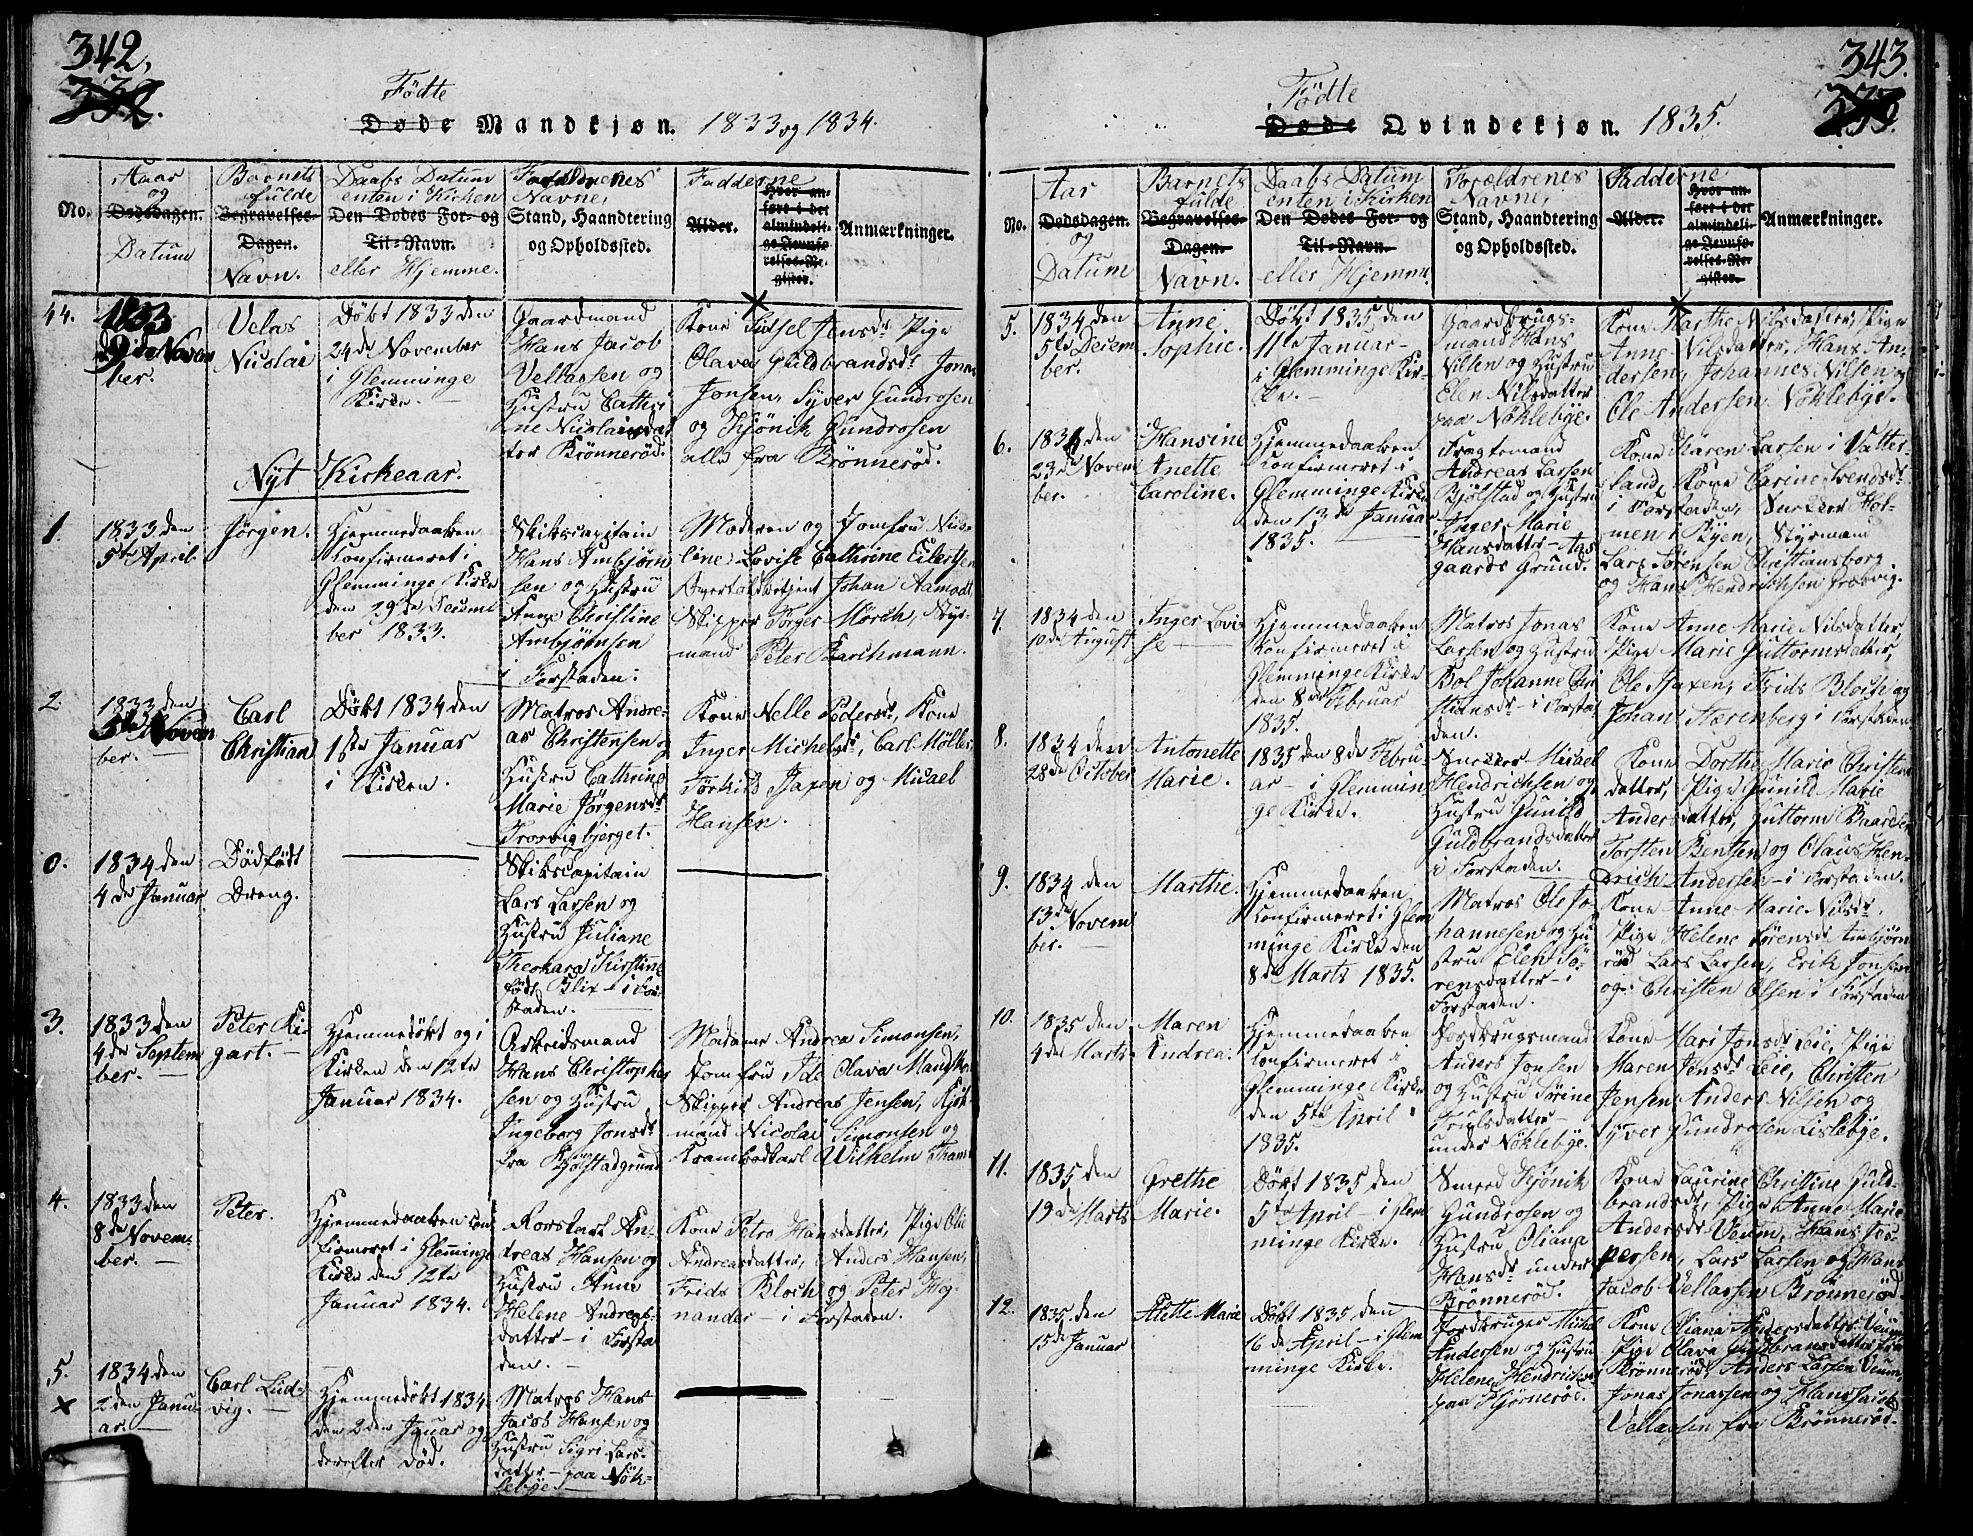 342.
332.
Födte
Døde Mandkjøn. 1833 og 1834.
No.
Aar og Dødsdagen. Datum
Barnets fulde Begravelses-Dagen. Navn.
Daabs Datum enten i Kirken Den Dødes For- og Til-Navn. eller Hjemme.
Forældrenes Navne, Stand, Haandtering og Opholdssted.
Fadderne Alder.
Hvor anført i det almindelige Jevnførelses-Register.
Anmærkninger.
44.
1833
9de Novem
ber.
Velas
Nicolai
Døbt 1833 den
24de November
i Glemminge
Kirke.
Gaardmand
Hans Jacob
Vellassen og
Hustru Cathri
ne Nicolaidat
ter Brønnerød.
Kone Sidsel Jensdr, Pige
Olava Guldbrandsdr Jonas
Jonsen, Syver Gundrosen
og Kjönik Gundrosen
alle fra Brønnerød.
Nyt Kirkeaar.
1.
1833 den
5te April
Jørgen.
Hjemmedaaben
Konfirmeret i
Glemminge Kirke
den 29de Decem
ber 1833.
Skibscapitain
Hans Ambjørn
sen og Hustru
Anne Christine
Ambjørnsen
i Forstaden.
Moderen og Jomfru Nico
line Lovise Cathrine Eilertsen
Overtoldbetjent Johan Aamodt
Skipper Jørger Mörch, Styr
mand Peter Barchmann.
2.
1833 den
5te Novem
ber.
Carl
Christian
Døbt 1834 den
1ste Januar
i Kirken.
Matros Andre-
as Christensen og
Hustru Cathrine
Marie Jørgensdr
Trosvigbjerget.
Kone Nelle Pedersdr, Kone
Inger Michelsdr, Carl Möller,
Torkild Isaxen og Micael
Hansen.
0.
1834 den
4de Januar
Dødfødt
Dreng.
Skibscapitain
Lars Larsen og
Hustru Juliane
Theohara Kirstine
født Blix i For-
staden.
3.
1833 den
4de Septem
ber.
Peter Ri
gart.
Hjemmedøbt og i
Kirken den 12te
Januar 1834.
Arbeidsmand
Hans Christopher
sen og Hustru
Ingeborg Jonsdr
fra Kjølstadgrund
Madame Andrea Simonsen,
Jomfru Ide Olava
Skipper Andreas Jensen, Kjöb
mand Nicolai Simonsen og
Krambodkarl Wilhelm Thams
4.
1833 den
8de Novem-
ber.
Peter.
Hjemmedaaben con
firmeret i Glemminge
Kirke den 12te
Januar 1834.
Rorskarl An-
dreas Hansen og
Hustru Anne
Helene Andreas-
datter i Forsta
den.
Kone Petro Hansdatter, Pige Olie
Andreasdatter, Anders Hansen,
Frids Bloch og Peter Hög-
nander i Forstaden.
5.
1834 den
2den Janu-
ar.
Carl Lud-
vig.
Hjemmedøbt 1834
den 2den Januar og
derefter Død.
Matros Hans
Jacob Hansen og
Hustru Sigri Lars-
datter paa Nök-
lebye.
343.
333.
Födte
Døde Qvindekjøn. 1835.
No.
Aar Dødsdagen. og Datum
Barnets fulde Begravelses-Dagen. Navn.
Daabs Datum enten i Kirken Den Dødes For- og Til-Navn. eller Hjemme.
Forældrenes Navne, Stand, Haandtering og Opholdssted.
Fadderne Alder.
Hvor anført i det almindelige Jevnførelses-Register.
Anmærkninger.
5.
1834 den
5te Decem
ber.
Anne
Sophie.
Døbt 1835 den
11te Januar
i Glemminge Kir-
ke.
Gaardbrugs-
mand Hans
Nilsen og Hustru
Elen Nilsdatter
paa Nöklebye.
Kone Marthe Nilsdatter, Pige
Anne Nilsdatter, Hans An-
dersen, Johannes Nilsen og
Ole Andersen Nöklebye.
6.
1834 den
23de Novem
ber.
Hansine
Anette
Caroline.
Hjemmedaaben
Konfirmeret i
Glemminge Kirke
den 13de Januar
1835.
Fragtemand
Andreas Larsen
Bjølstad og Hustru
Inger Marie
Hansdatter Aas
gaards Grund.
Kone Karen Larsen i Vatter
land, Kone Carine Svendsdr
i Forstaden, Snekker Hol-
men i Byen, Styrmand
Lars Sørensen Christiansborg
og Hans Hendrichsen Trosvig.
7.
1834 den
10de August
Inger Lovi
se
Hjemmedaaben
Konfirmeret i
Glemminge Kirke
den 8de Februar
1835.
Matros Jonas
Larsen og Hustru
Bol Johanne Chri
stiansdr i Forsta
den.
Kone Anne Marie Nilsdatter,
Pige Marie Guttormsdatter,
Ole Isaxen, Frids Bloch og
Johan Stærenberg i Forstaden
8.
1834 den
28de October
Antonette
Marie.
1835 den 8de Febru
ar i Glemmin
ge Kirke.
Snekker Micael
Hendrichsen og
Hustru Gunild
Guldbrandsdatter
i Forstaden.
Kone Dorthe Marie Christen
datter, Pige Gunild Marie
Andersdatter, Guttorm Baardsen
Torsten Bentsen og Claus Hen-
drich Andersen i Forstaden.
9.
1834 den
13de Novem
ber.
Marthe.
Hjemmedaaben
Konfirmeret i Glem
minge Kirke den
8de Marts 1835.
Matros Ole Jo
hannesen og Hu
stru Elen Sö-
rensdatter i
Forstaden.
Kone Anne Marie Nilsdr.
Pige Helene Sørensdr Ambjørn
rød Lars Larsen, Erik Jonsen
og Christen Olsen i Forstaden
10.
1835 den
4de Marts
Maren
Andrea.
Hjemmedaaben
Confirmeret i
Glemminge Kirke
den 5te April
1835.
Jordbrugsmand
Anders Jonsen
og Hustru Sörine
Truelsdatter
under Nöklebye.
Kone Mari Jonsdr Leie, Pige
Maren Jensdr Leie, Christen
Jensen, Anders Nilsen og
Syver Gundrosen Lislebye.
11.
1835 den
19de Marts
Grethe
Marie.
Døbt 1835 den
5te April i Glem
minge Kirke.
Smeed Kjönik
Gundrosen og
Hustru Oliana
Hansdr under
Brönnerød.
Kone Laurine Christine Guld-
brandsdr, Pige Anne Marie
Andersdr Veum, Hans Jes-
persen, Lars Larsen og Hans
Jacob Vellassen Brönneröd
12.
1835 den
15de Januar
Alette Marie
Døbt 1835 den
16de April i Glem
minge Kirke.
Jordbruger Michel
Andersen og Hustru
Helene Hendrichsdr
paa Kjørnerød.
Kone Oliana Andersdatter Veum
Pige Olava Guldbrandsdatter fra
Brönneröd, Anders Larsen Veum,
Jonas Jonassen og Hans Jacob
Vellassen fra Brönneröd.